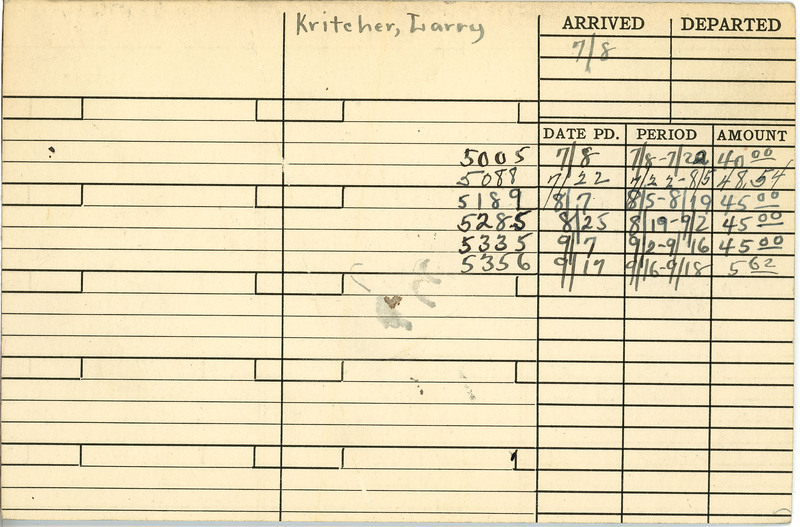 Kritcher, Larry
ARRIVED DEPARTED
7/8
DATE PD. PERIOD AMOUNT
5005 7/8 7/8-7/22 40 00
5088 7/22 7/22-8/5 48.54
5189 8/7 8/5-8/19 45 00
5285 8/25 8/19-9/2 45 00
5335 9/7 9/2-9/16 45 00
5356 9/17 9/16-9/18 5 62